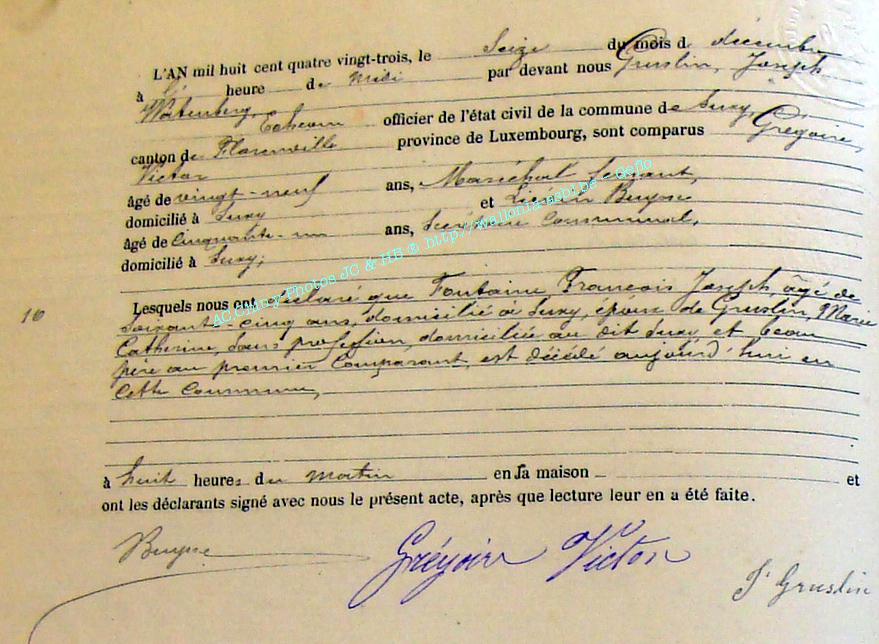 L'AN mil huit cent quatre vingt-trois, le Seize du mois d décembre
à heure de midi par devant nous Gruslin, Joseph
Echevin officier de l'état civil de la commune de Suxy,
canton de Florenville province de Luxembourg, sont comparus Grégoire,
Victor
âgé de vingt-neuf ans, Maréchal ferrant,
domicilié à Suxy et Buysse
âgé de Cinquante-un ans, Secrétaire Communal,
domicilié à Suxy;
Lesquels nous ont déclaré que Fontaine, François Joseph, âgé de
Soixante-cinq ans, domicilié à Suxy, époux de Gruslin, Marie
Catherine, sans profession, domiciliée au dit Suxy et beau
père au premier Comparant, est décédé aujourd'hui en
Cette Commune,
10
à huit heures du matin en sa maison et
ont les déclarants signé avec nous le présent acte, après que lecture leur en a été faite.
Buysse Grégoire Victor Jh Gruslin
AC Chiny Photos JC & HB ® http://wallonia-asbl.be - Geflo